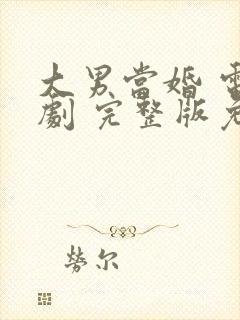 大男當婚 電
劇 完整版 免
勞尔